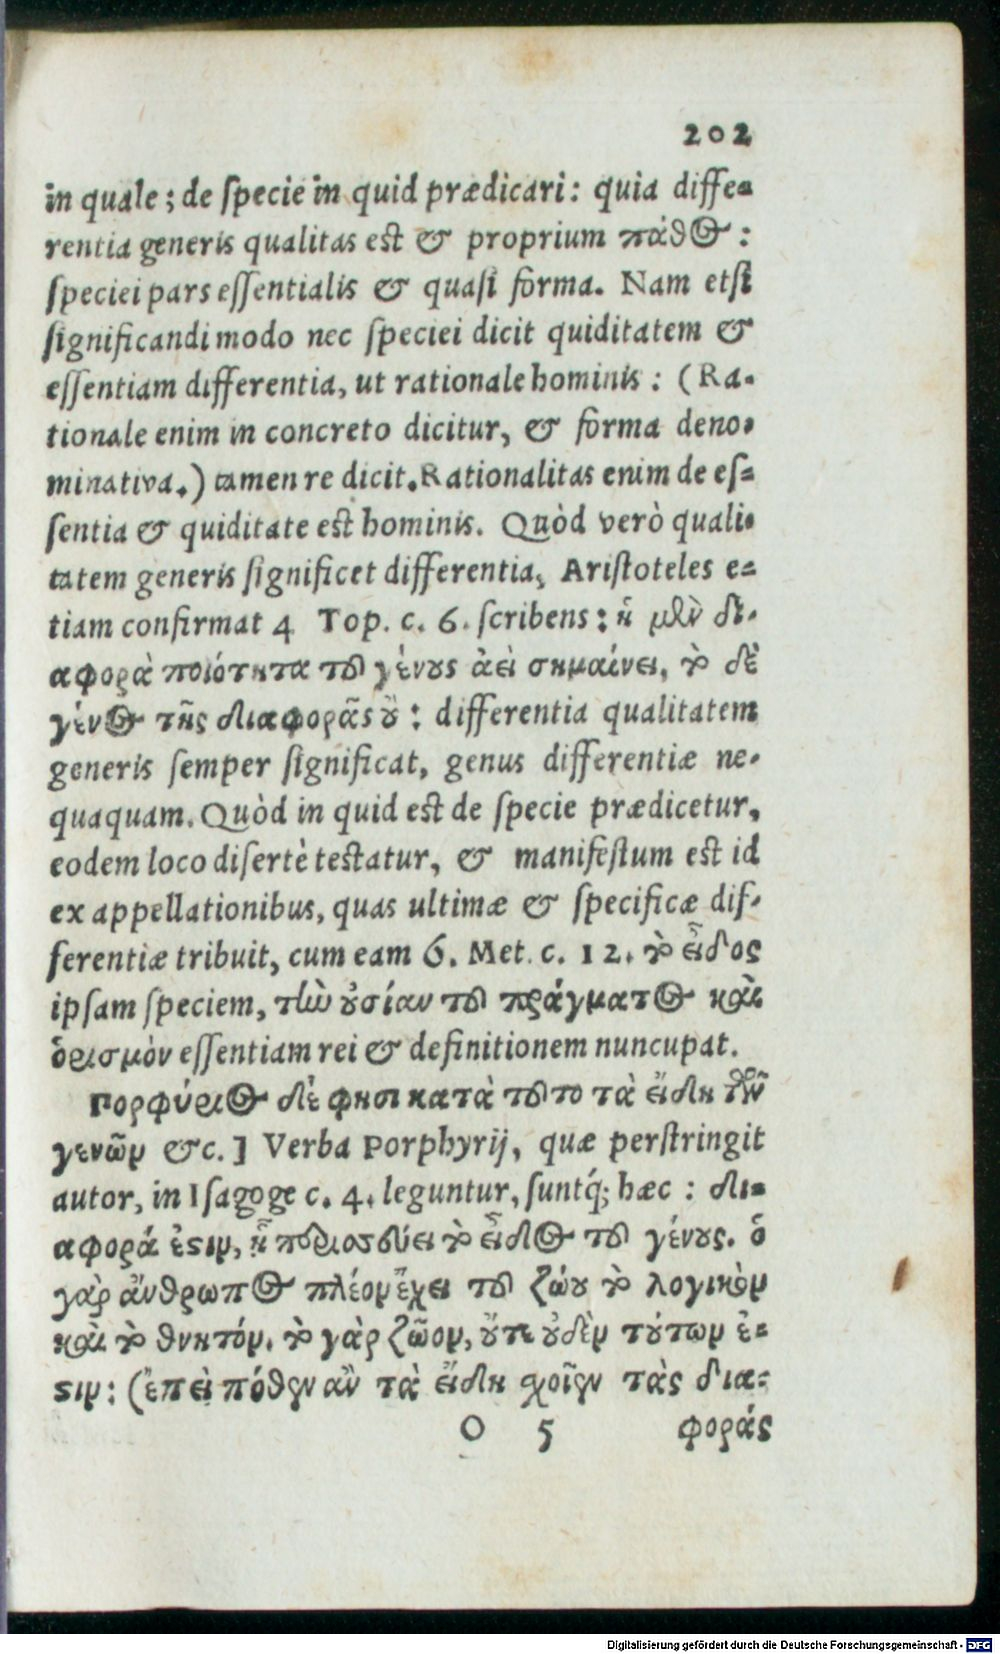 202
in quale; de specie in quid prædicari: quia diffe-
rentia generis qualitas est & proprium πάθος:
speciei pars essentialis & quasi forma. Nam etsi
significandi modo nec speciei dicit quiditatem &
essentiam differentia, ut rationale hominis: (Ra-
tionale enim in concreto dicitur, & forma deno-
minativa.) tamen re dicit. Rationalitas enim de es-
sentia & quiditate est hominis. Quòd verò quali-
tatem generis significet differentia, Aristoteles e-
tiam confirmat 4 Top. c. 6. scribens: ἡ μὲν δι-
αφορὰ ποιότητα τοῦ γένους ἀεὶ σημαίνει, τὸ δὲ
γένος τῆς διαφορᾶς οὔ: differentia qualitatem
generis semper significat, genus differentiæ ne-
quaquam. Quòd in quid est de specie prædicetur,
eodem loco disertè testatur, & manifestum est id
ex appellationibus, quas ultimæ & specificæ dif-
ferentiæ tribuit, cum eam 6. Met. c. 12. τὸ εἶδος
ipsam speciem, τὴν οὐσίαν τοῦ πράγματος καὶ
ὁρισμὸν essentiam rei & definitionem nuncupat.
Πορφύριος δέ φησι κατὰ τοῦτο τὰ εἴδη τῶν
γενῶν &c.] Verba Porphyrij, quæ perstringit
autor, in Isagoge c. 4. leguntur, suntq́; hæc: δι-
αφορά ἐστιν, ᾗ περισσεύει τὸ εἶδος τοῦ γένους. ὁ
γὰρ ἄνθρωπος πλέον ἔχει τοῦ ζώου τὸ λογικὸν
καὶ τὸ θνητόν. τὸ γὰρ ζῶον, οὔτε οὐδὲν τούτων ἐ-
στιν: (ἐπεὶ πόθεν ἂν τὰ εἴδη χοῖεν τὰς δια-
O 5 φοράς
Digitalisierung gefördert durch die Deutsche Forschungsgemeinschaft - DFG